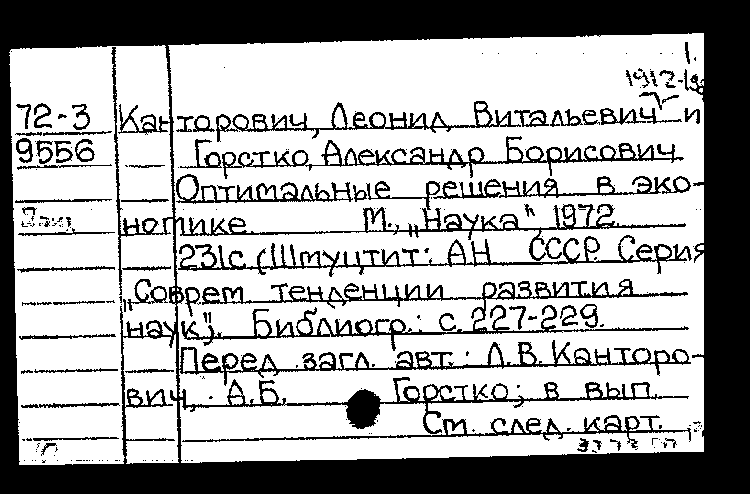 1.
72-3 Канторович, Леонид Витальевич и
9556 Горстко, Александр Борисович
Оптимальные решения в эко-
номике. М., „Наука", 1972.
231с. (Штуцтит: АН СССР. Серия
„Соврем. тенденции развития
наук"). Библиогр.: с. 227-229.
Перед загл. авт.: Л.В. Канторо-
вич, А.Б. Горстко; в вып.
См. след. карт.